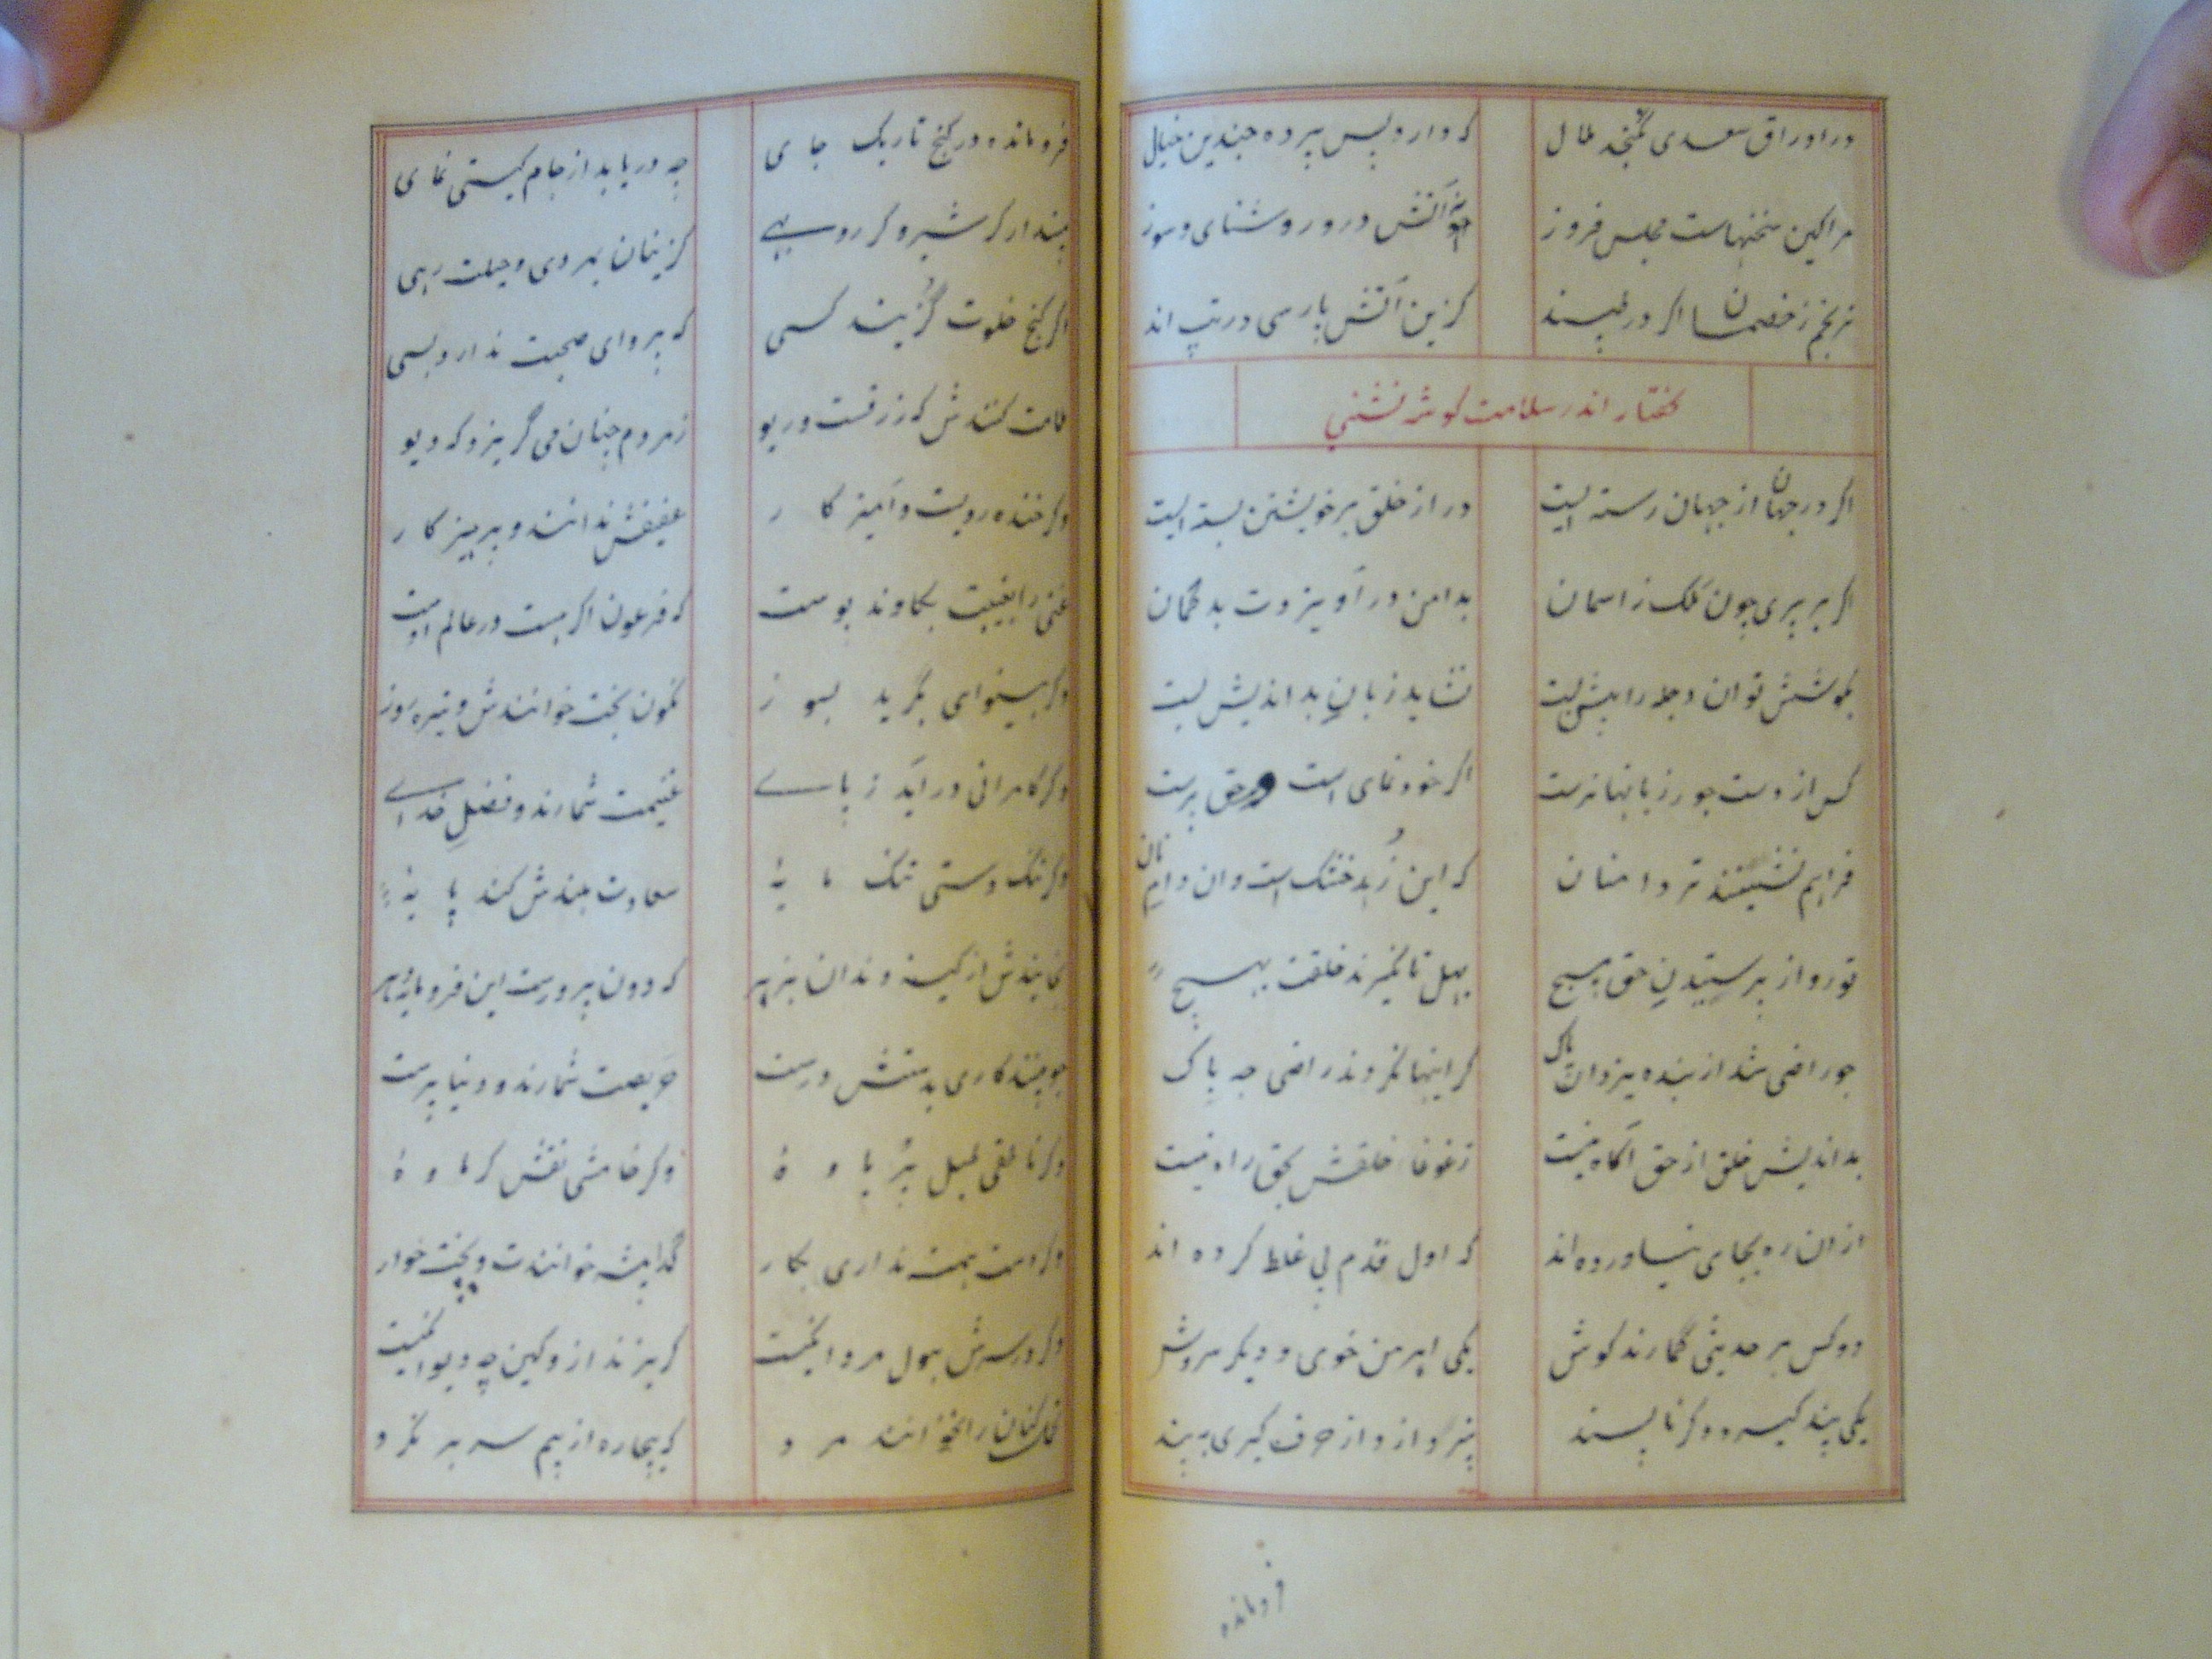 در اوراق سعدی نگنجد ملال که دارد پس پرده چندین خیال
مرا کین سخنهاست مجلس فروز چو آتش درو روشنای و سوز
نرنجم ز خصمان اگر در طپند کزین آتش پارسی در تپ اند
گفتار اندر سلامت گوشه نشینی
اگر در جهان از جهان رسته ایست در از خلق بر خویشتن بسته ایست
اگر بر پری چون ملک ز اسمان بدامن در آویزدت بد گمان
بکوشش توان دجله را پیش بست نشاید زبان بد اندیش بست
کس از دست جور زبانها نرست اگر خودنمای است و حق پرست
فراهم نشینند تر دامنان که این زهد خشک است و ان دام نان
تو رو از پرستیدن حق مپیچ بهل تا نگیرند خلقت بهیچ
چو راضی شد از بنده یزدان پاک گر اینها نگردند راضی چه باک
بد اندیش خلق از حق اگاه نیست ز غوغاء خلقش بحق راه نیست
ازان ره بجای نیاورده اند که اول قدم پی غلط کرده اند
دو کس بر حدیثی گمارند گوش یکی اهرمن خوی و دیگر سروش
یکی پند گیرد دگر ناپسند نپردازد از حرف گیری به پند
فرومانده
فرومانده در کنج تاریک جای چه دریابد از جام گیتی نمای
مپندار گر شیر و گر روبهی کزینان بمردی و حیلت رهی
اگر کنج خلوت گزیند کسی که پروای صحبت ندارد بسی
ملامت کنندش که زرقست و ریو ز مردم چنان می گریزد که دیو
وگر خنده رویست و آمیزگار عفیفش ندانند و پرهیزکار
غنی را بغیبت بکاوند پوست که فرعون اگر هست در عالم اوست
وگر بینوای بگرید بسوز نگون بخت خوانندش و تیره روز
وگر کامرانی در آید ز پای غنیمت شمارند و فضل خدای
وگر تنگ دستی تنک مایهٔ سعادت بلندش کند پایهٔ
بخایندش از کینه دندان بزهر که دون پرورست این فرومایه دهر
چو بینند کاری بدستش درست حریصت شمارند و دنیا پرست
وگر ناطقی طبل پر یاوهٔ وگر خامشی نقش گرماوهٔ
وگر دست همت نداری بکار گداپیشه خوانندت و پخته خوار
وگر در سرش هول مردانگیست گریزند ازو کین چه دیوانگیست
تحمل کنان را نخوانند مرد که بیچاره از بیم سر بر نکرد